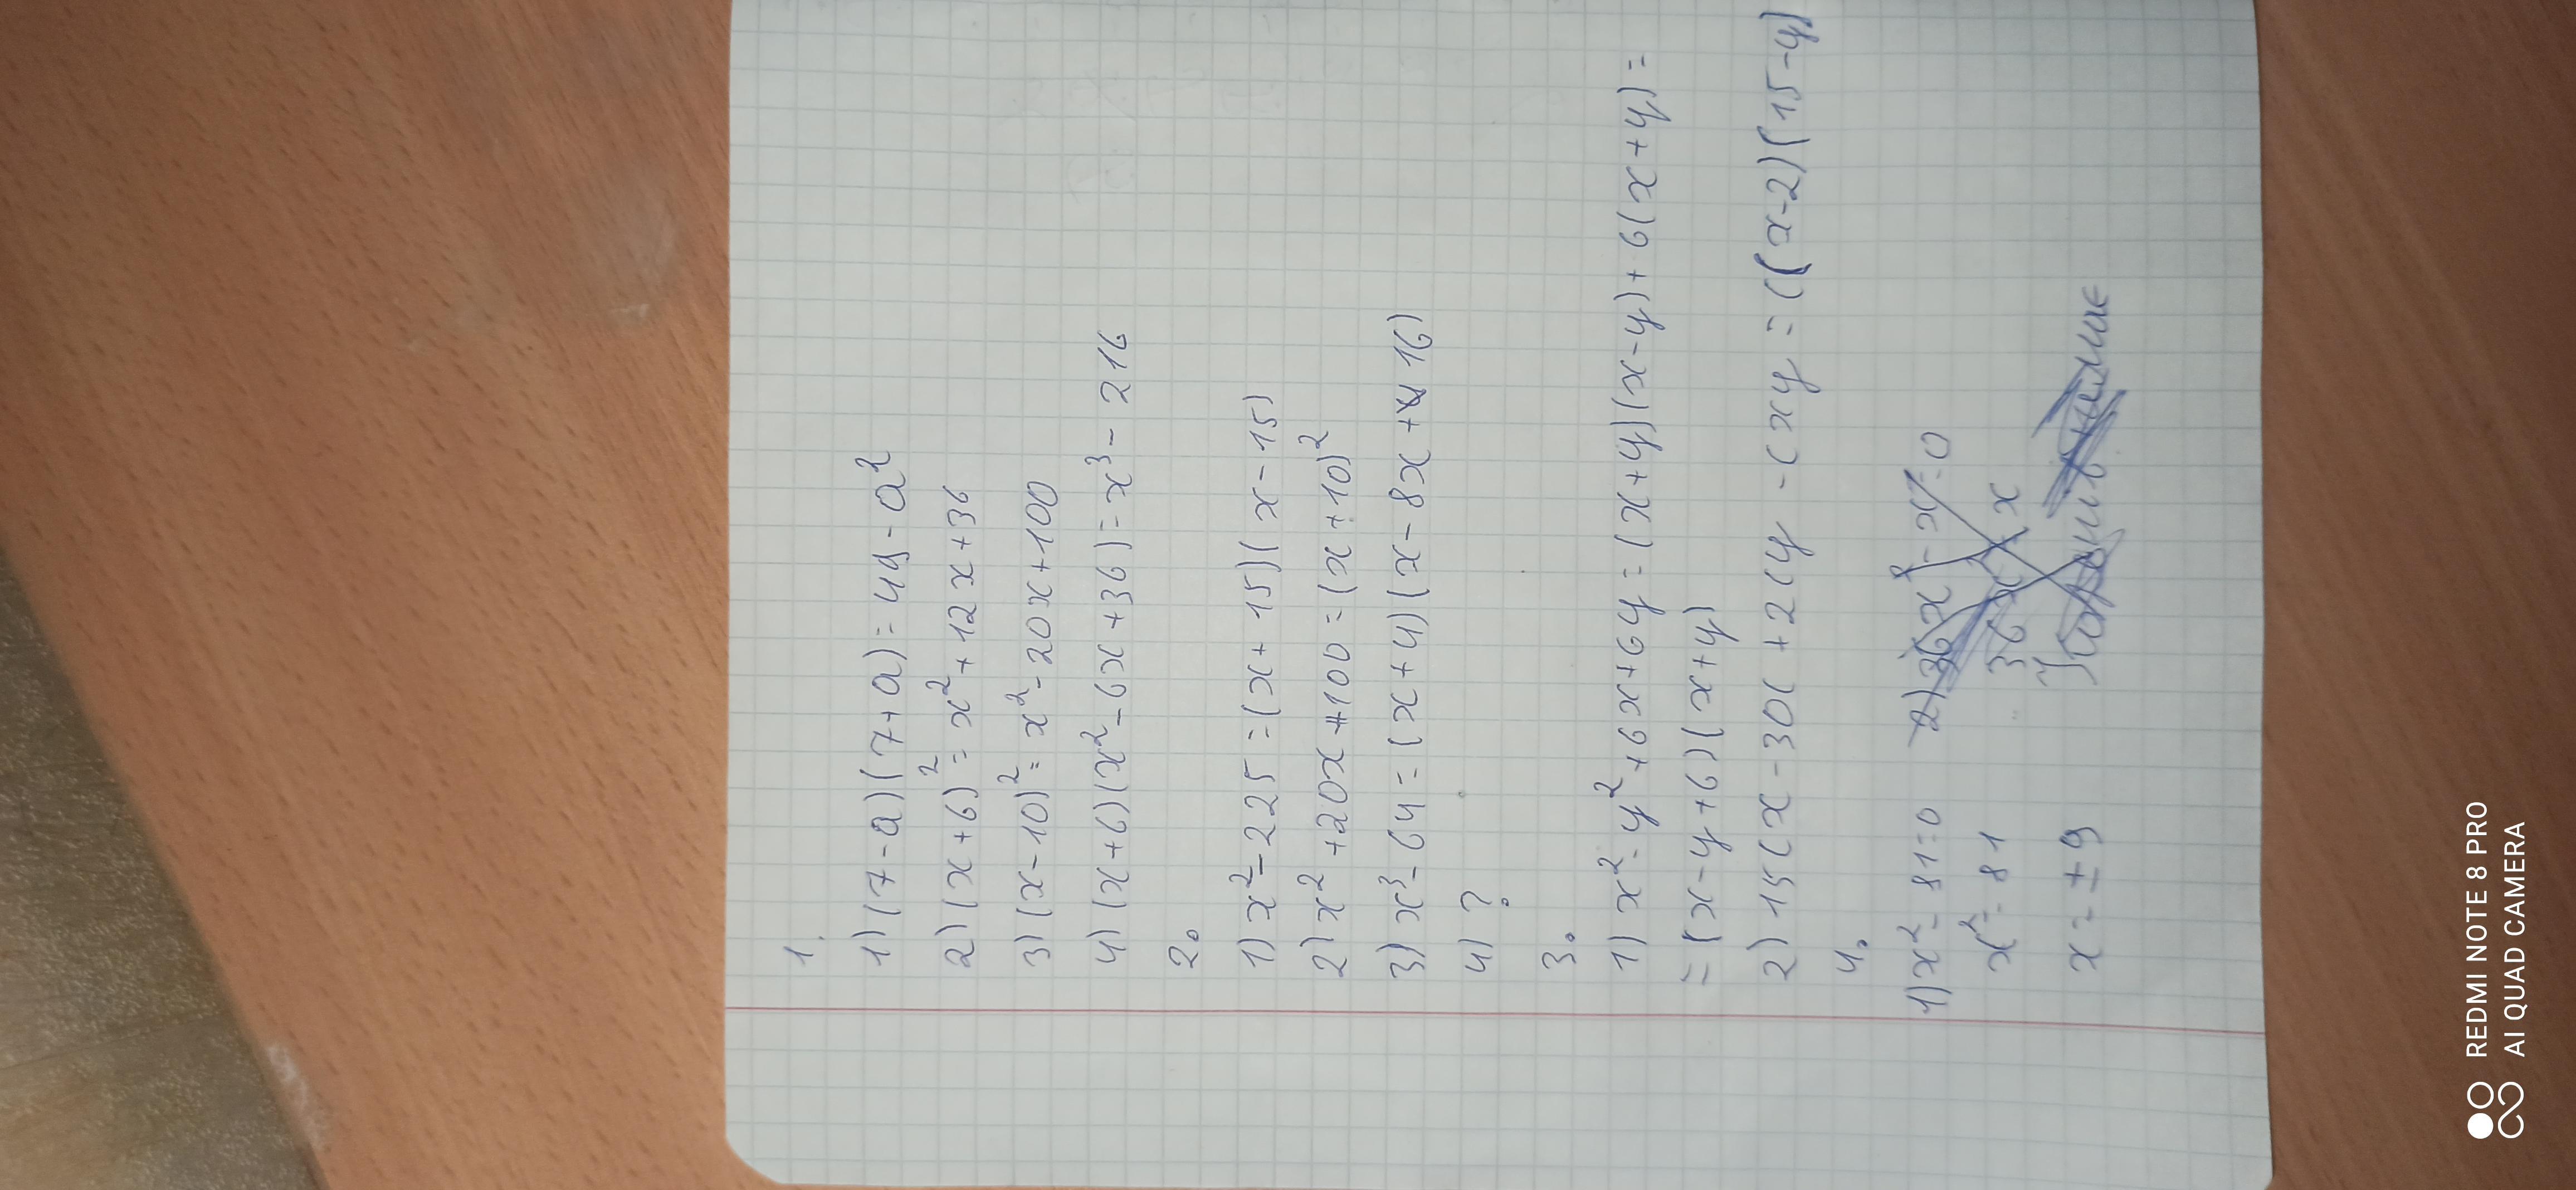 1.
1) (7-a)(7+a)=49-a²
2) (x+6)²=x²+12x+36
3) (x-10)²=x²-20x+100
4) (x+6)(x²-6x+36)=x³-216
2.
1) x²-225=(x+15)(x-15)
2) x²+20x+100=(x+10)²
3) x³-64=(x+4)(x-8x+16)
4) ?
3.
1) x²-y²+6x+6y=(x+y)(x-y)+6(x+y)=
=(x-y+6)(x+y)
2) 15(x-30(+2(y-(xy=((x-2)(15-y)
4.
1) x²-81=0
x²=81
x=±9
REDMI NOTE 8 PRO
AI QUAD CAMERA